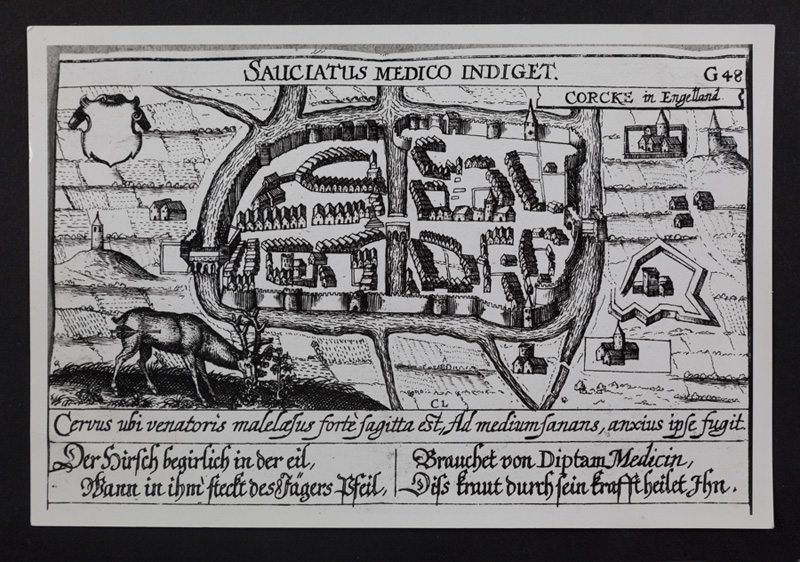 SAUCIATUS MEDICO INDIGET.
G 48
CORCKE in Engelland
CL
Cervus ubi venatoris malelæsus fortè sagitta est, Ad medium sanans, anxius ipse fugit.
Der Hirsch begirlich in der eil,
Wann in ihm steckt des Jägers Pfeil,
Brauchet von Diptam Medicin,
Diſs kraut durch sein krafft heilet Ihn.